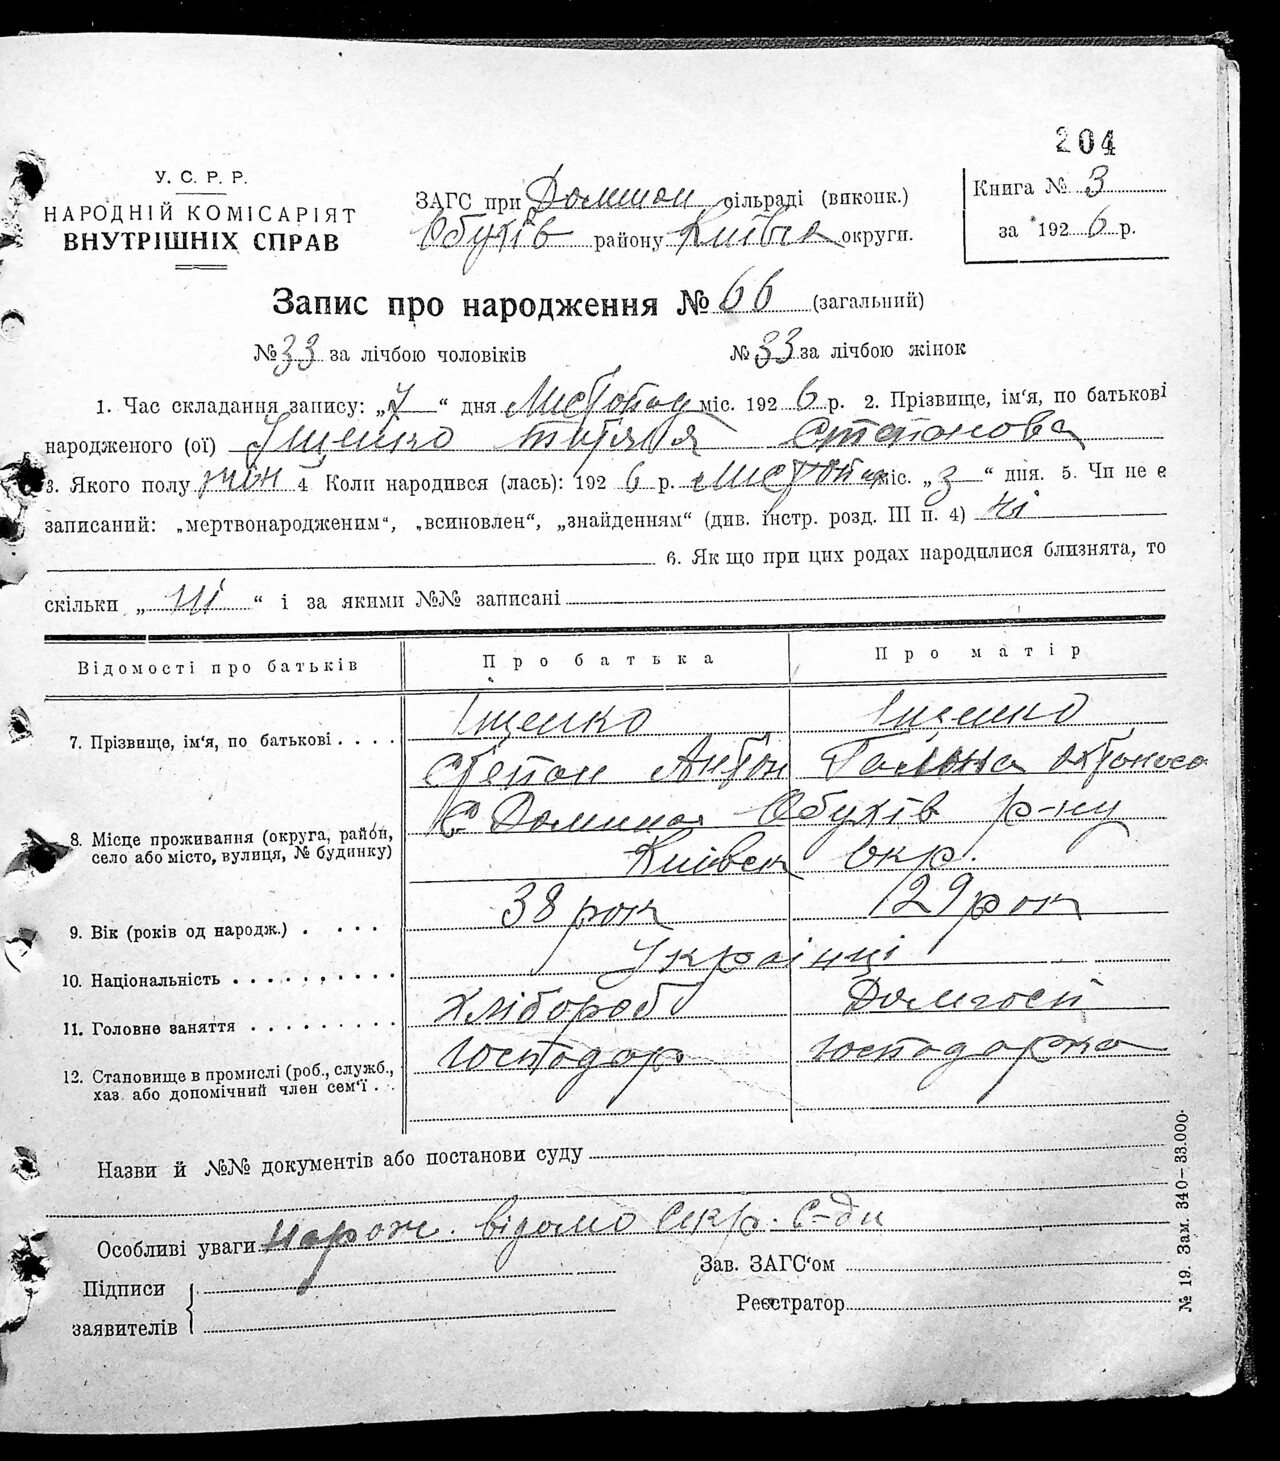 204
У. С. Р. Р.
НАРОДНІЙ КОМІСАРІЯТ
ВНУТРІШНІХ СПРАВ
ЗАГС при сільраді (виконк.)
Обухів району Київск округи.
Книга № 3
за 1926 р.
Запис про народження № 66 (загальний)
№ 33 за лічбою чоловіків № 33 за лічбою жінок
1. Час складання запису: „7“ дня Листопад міс. 1926 р. 2. Прізвище, ім'я, по батькові
народженого (ої) Іщенко Степанова
3. Якого полу жін 4 Коли народився (лась): 1926 р. Листопад міс. „3“ дня. 5. Чи не є
записаний: „мертвонародженим“, „всиновлен“, „знайденням“ (див. інстр. розд. III п. 4) Ні
6. Як що при цих родах народилися близнята, то
скільки „ні“ і за якими №№ записані
Відомості про батьків Про батька Про матір
7. Прізвище, ім'я, по батькові . . . . Іщенко Іщенко
Степан Антон Гальона
8. Місце проживання (округа, район, село або місто, вулиця, № будинку) С. Обухів р-ну
Київск окр.
9. Вік (років од народж.) . . . . 38 рок 29 рок
10. Національність . . . . . . . . . Українці
11. Головне заняття . . . . . . . . . Хлібороб Домгосп
12. Становище в промислі (роб., служб., хаз. або допомічний член сем'ї . . Господар господарка
Назви й №№ документів або постанови суду
Особливі уваги нарож. відомо Секр. С-ди
Підписи
заявителів
Зав. ЗАГС'ом
Реєстратор
№ 19. Зам. 340—33.000.